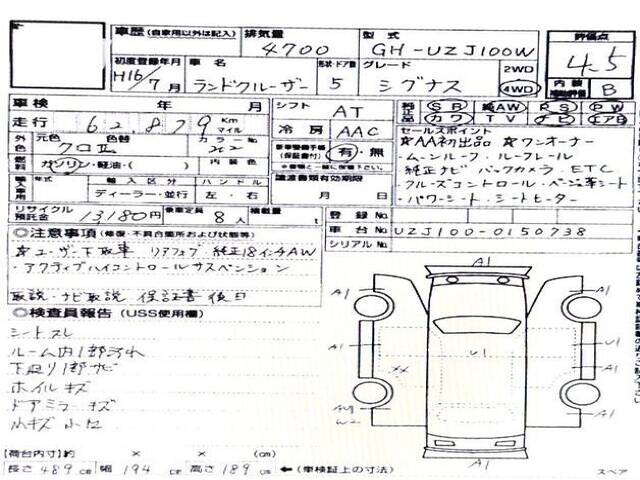 車歴 (自家用以外は記入) 排気量 4700 型式 GH-UZJ100W 評価点 4.5
初度登録年月 H16/7月 車名 ランドクルーザー 形状・ドア数 5 グレード シグナス 2WD 4WD 内装 B
車検 年 月 シフト AT SR 純AW PS PW
走行 62,879 Km マイル 冷房 AAC カワ TV ナビ エアB
外色 元色 クロ 色替 カラーNo 202 有・無 セールスポイント
燃料 ガソリン・軽油・( ) 内装色
☆AA初出品 ☆ワンオーナー
・ムーンルーフ・ルーフレール
・純正ナビ・バックカメラ・ETC
・クルーズコントロール・ベージュ革シート
・パワーシート・シートヒーター
輸入車用 年式 輸入区分 ハンドル ディーラー・並行 左・右 譲渡書類有効期限 月 日
リサイクル預託金 13180円 乗車定員 8人 積載量 t 登録No
車台No UZJ100-0150738
シリアルNo
◎注意事項 (修復・不具合箇所および状態等)
☆ユーザー下取車 リアフォグ 純正18インチAW
・アクティブハイコントロールサスペンション
取説・ナビ取説 保証書 後日
◎検査員報告 (USS使用欄)
シートスレ
ルーム内1部汚れ
下廻り1部サビ
ホイルキズ
ドアミラーキズ
小キズ小凹
A1
A1 A1
A1 U1 U1
XX
A1
W2
A1
【荷台内寸】約 × × (cm)
長さ 489cm 幅 194cm 高さ 189cm ←(車検証上の寸法) スペア